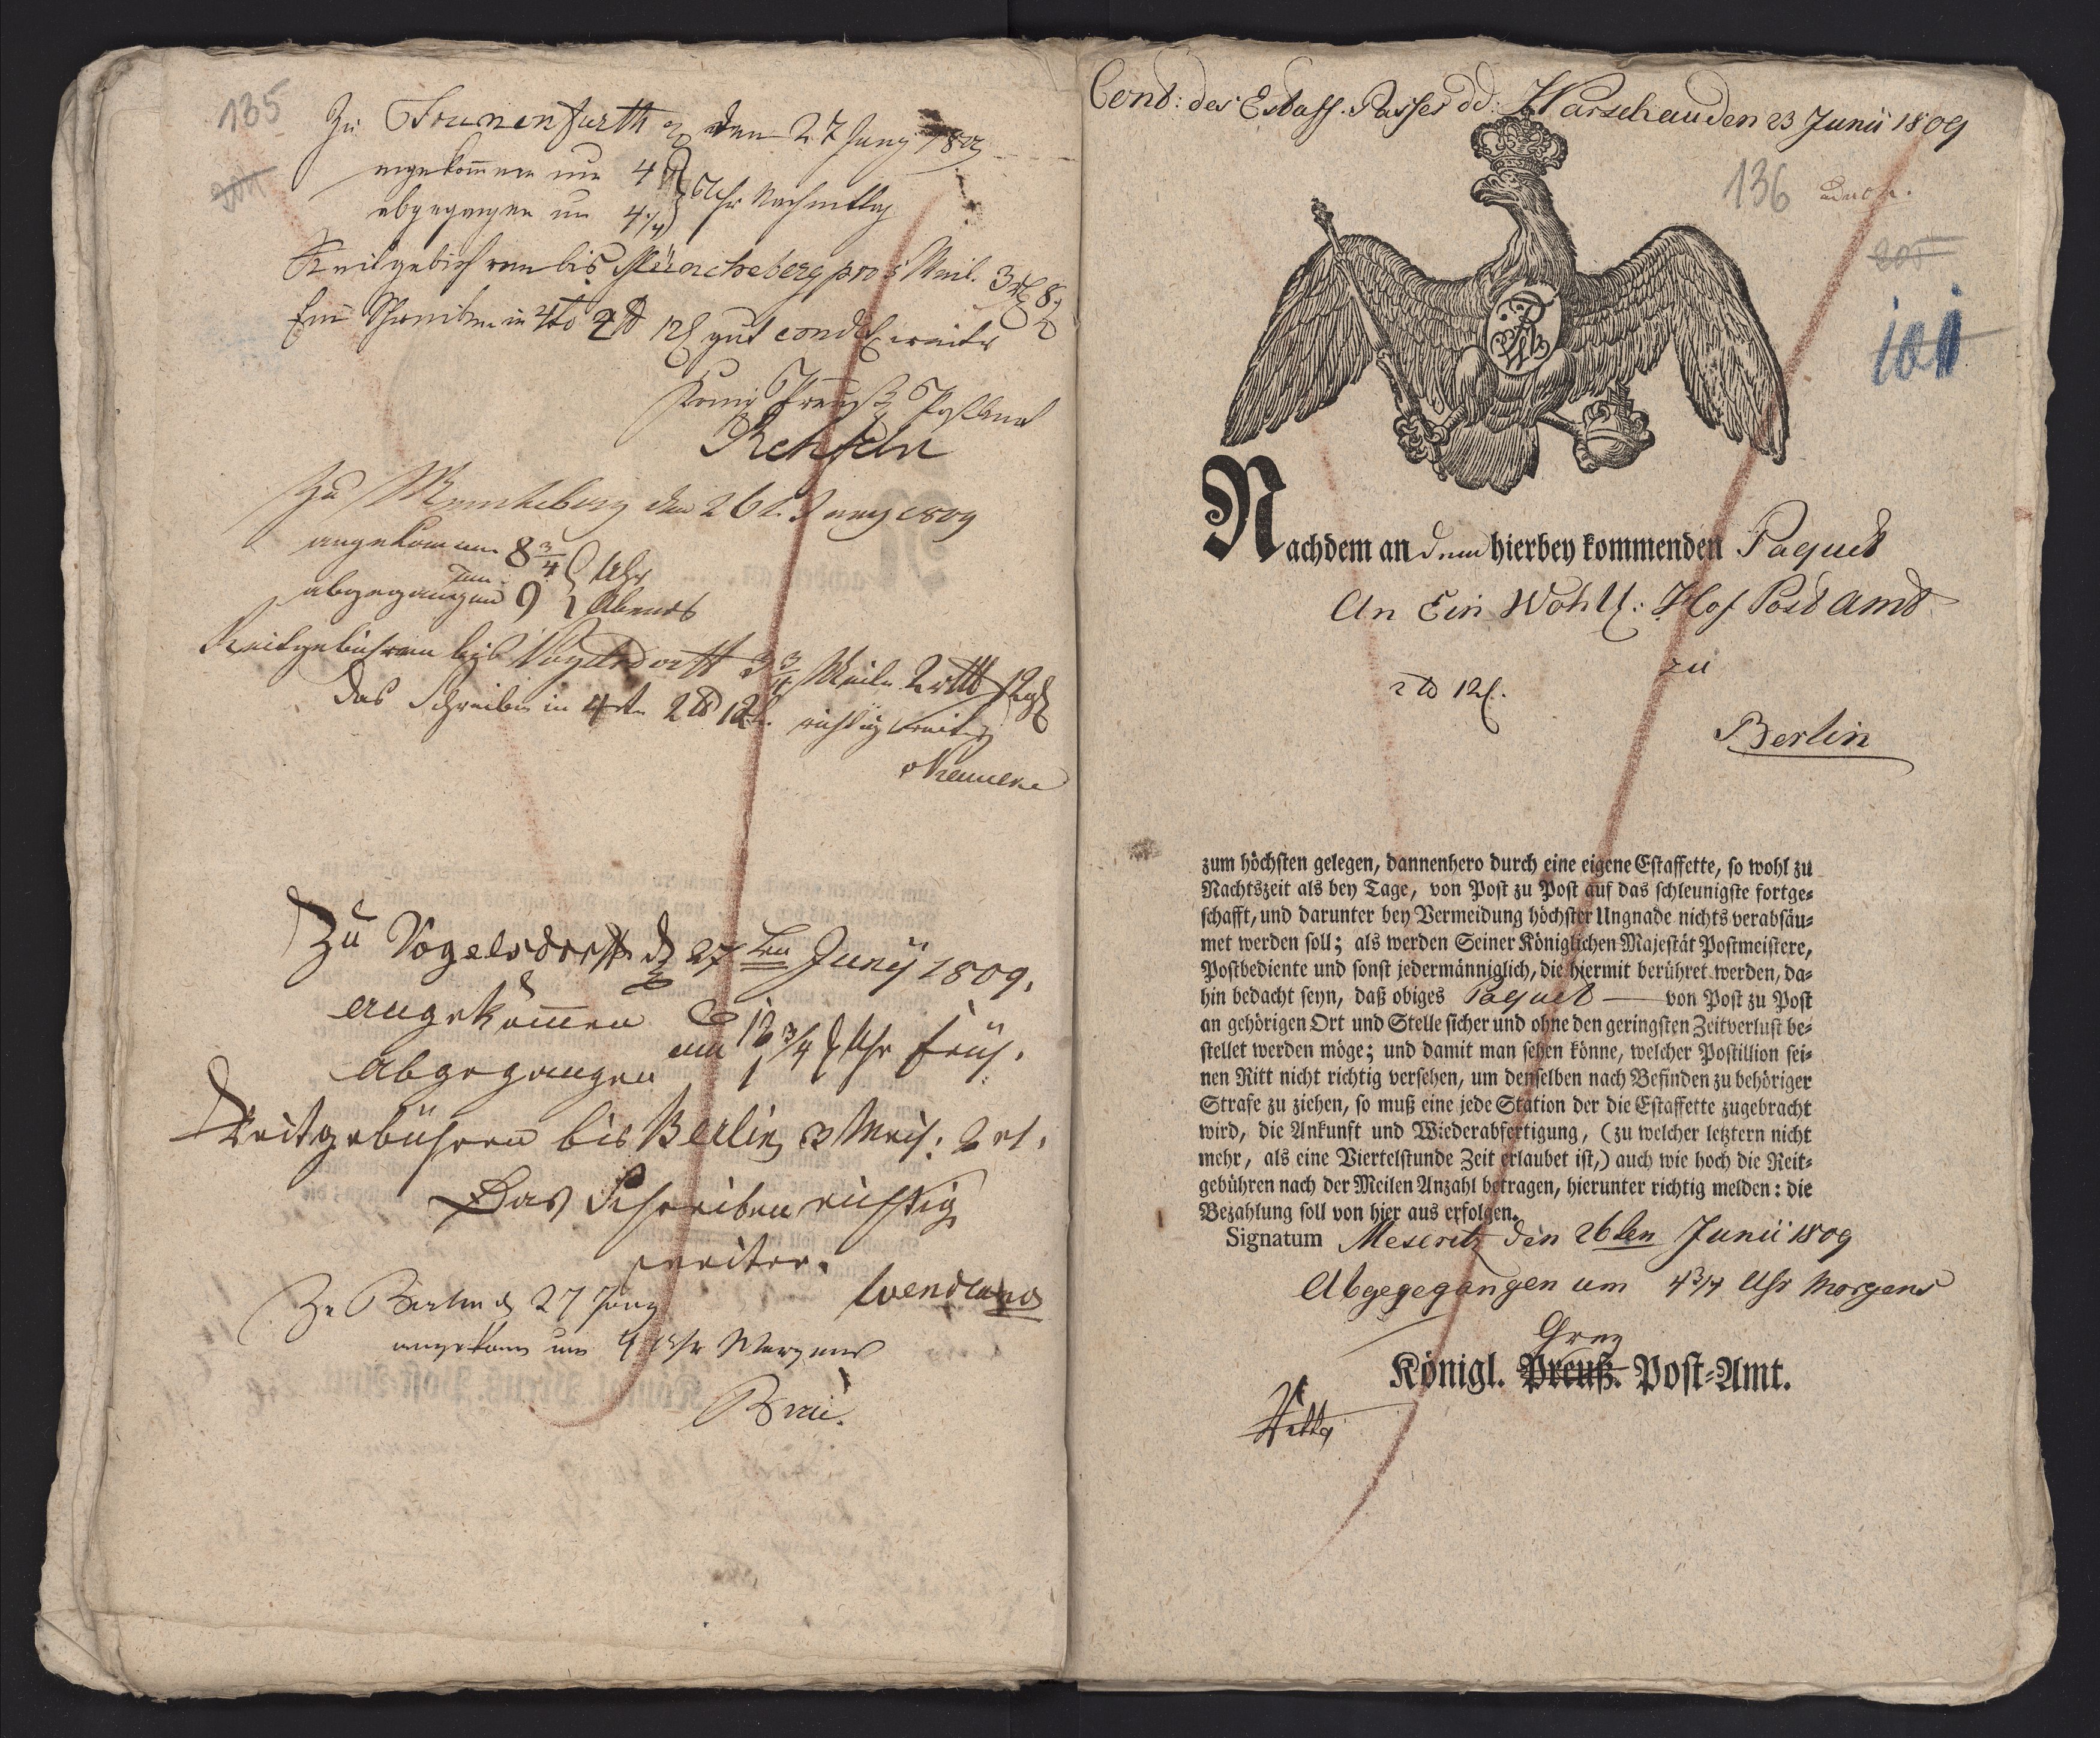 135
Zu Frauenfurth den 27 Juny 1809
angekommen um 4
abgegangen um 4 1/4 Uhr Nachmittag
Reitgebühren bis Müncheberg pro 5 Meil. 3 rth 8 g
Ein Schreiben in 4to 2 tt 12 l gut cond weiter
König Preuß Postamt
Rehfeld
Zu Muncheberg den 26t. Juny 1809
angekommen 8 3/4 Uhr
um
abgegangen 9 Abends
Reitgebühren bis Vogelsdorff 3 3/4 Meile 2 rth 12 g
das Schreiben in 4to 2 tt 12 l. richtig weiter
Zu Vogelsdorff d 27ten Juny 1809.
angekommen um 12 3/4 Uhr früh.
abgegangen 1
Reitgebühren bis Berlin 3 Meil. 2 rt.
Das Schreiben richtig
weiter.
Wendland
Zu Berlin d 27 Juny
angekom um 4 Uhr Morgens
Cont: des Estaff. Passes dd: Warschau den 23 Junii 1809
136
101
Nachdem an dem hierbey kommenden Paquet
An Ein Wohll: Hof Post Amt
zu
2 tt 12 l.
Berlin
zum höchsten gelegen, dannenhero durch eine eigene Estaffette, so wohl zu
Nachtszeit als bey Tage, von Post zu Post auf das schleunigste fortge-
schafft, und darunter bey Vermeidung höchster Ungnade nichts verabsäu-
met werden soll; als werden Seiner Königlichen Majestät Postmeistere,
Postbediente und sonst jedermänniglich, die hiermit berühret werden, da-
hin bedacht seyn, daß obiges Paquet — von Post zu Post
an gehörigen Ort und Stelle sicher und ohne den geringsten Zeitverlust be-
stellet werden möge; und damit man sehen könne, welcher Postillion sei-
nen Ritt nicht richtig versehen, um denselben nach Befinden zu behöriger
Strafe zu ziehen, so muß eine jede Station der die Estaffette zugebracht
wird, die Ankunft und Wiederabfertigung, (zu welcher letztern nicht
mehr, als eine Viertelstunde Zeit erlaubet ist,) auch wie hoch die Reit-
gebühren nach der Meilen Anzahl betragen, hierunter richtig melden: die
Bezahlung soll von hier aus erfolgen.
Signatum Meseritz den 26ten Junii 1809
Abgegegangen um 4 3/4 Uhr Morgens
Königl. Preuß. Post-Amt.